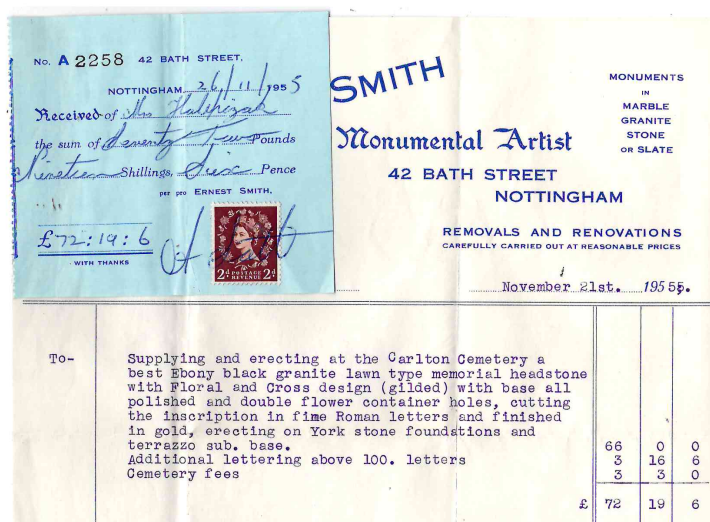 No. A 2258 42 BATH STREET,
NOTTINGHAM 26/11/1955
Received of Mrs
the sum of Seventy Two Pounds
Nineteen Shillings, Six Pence
per pro ERNEST SMITH,
£72:19:6
WITH THANKS
2d POSTAGE REVENUE 2d
SMITH
Monumental Artist
42 BATH STREET
NOTTINGHAM
MONUMENTS
IN
MARBLE
GRANITE
STONE
OR SLATE
REMOVALS AND RENOVATIONS
CAREFULLY CARRIED OUT AT REASONABLE PRICES
November 21st. 1955
To- Supplying and erecting at the Carlton Cemetery a
best Ebony black granite lawn type memorial headstone
with Floral and Cross design (gilded) with base all
polished and double flower container holes, cutting
the inscription in fime Roman letters and finished
in gold, erecting on York stone foundations and
terrazzo sub. base. 66 0 0
Additional lettering above 100. letters 3 16 6
Cemetery fees 3 3 0
£ 72 19 6